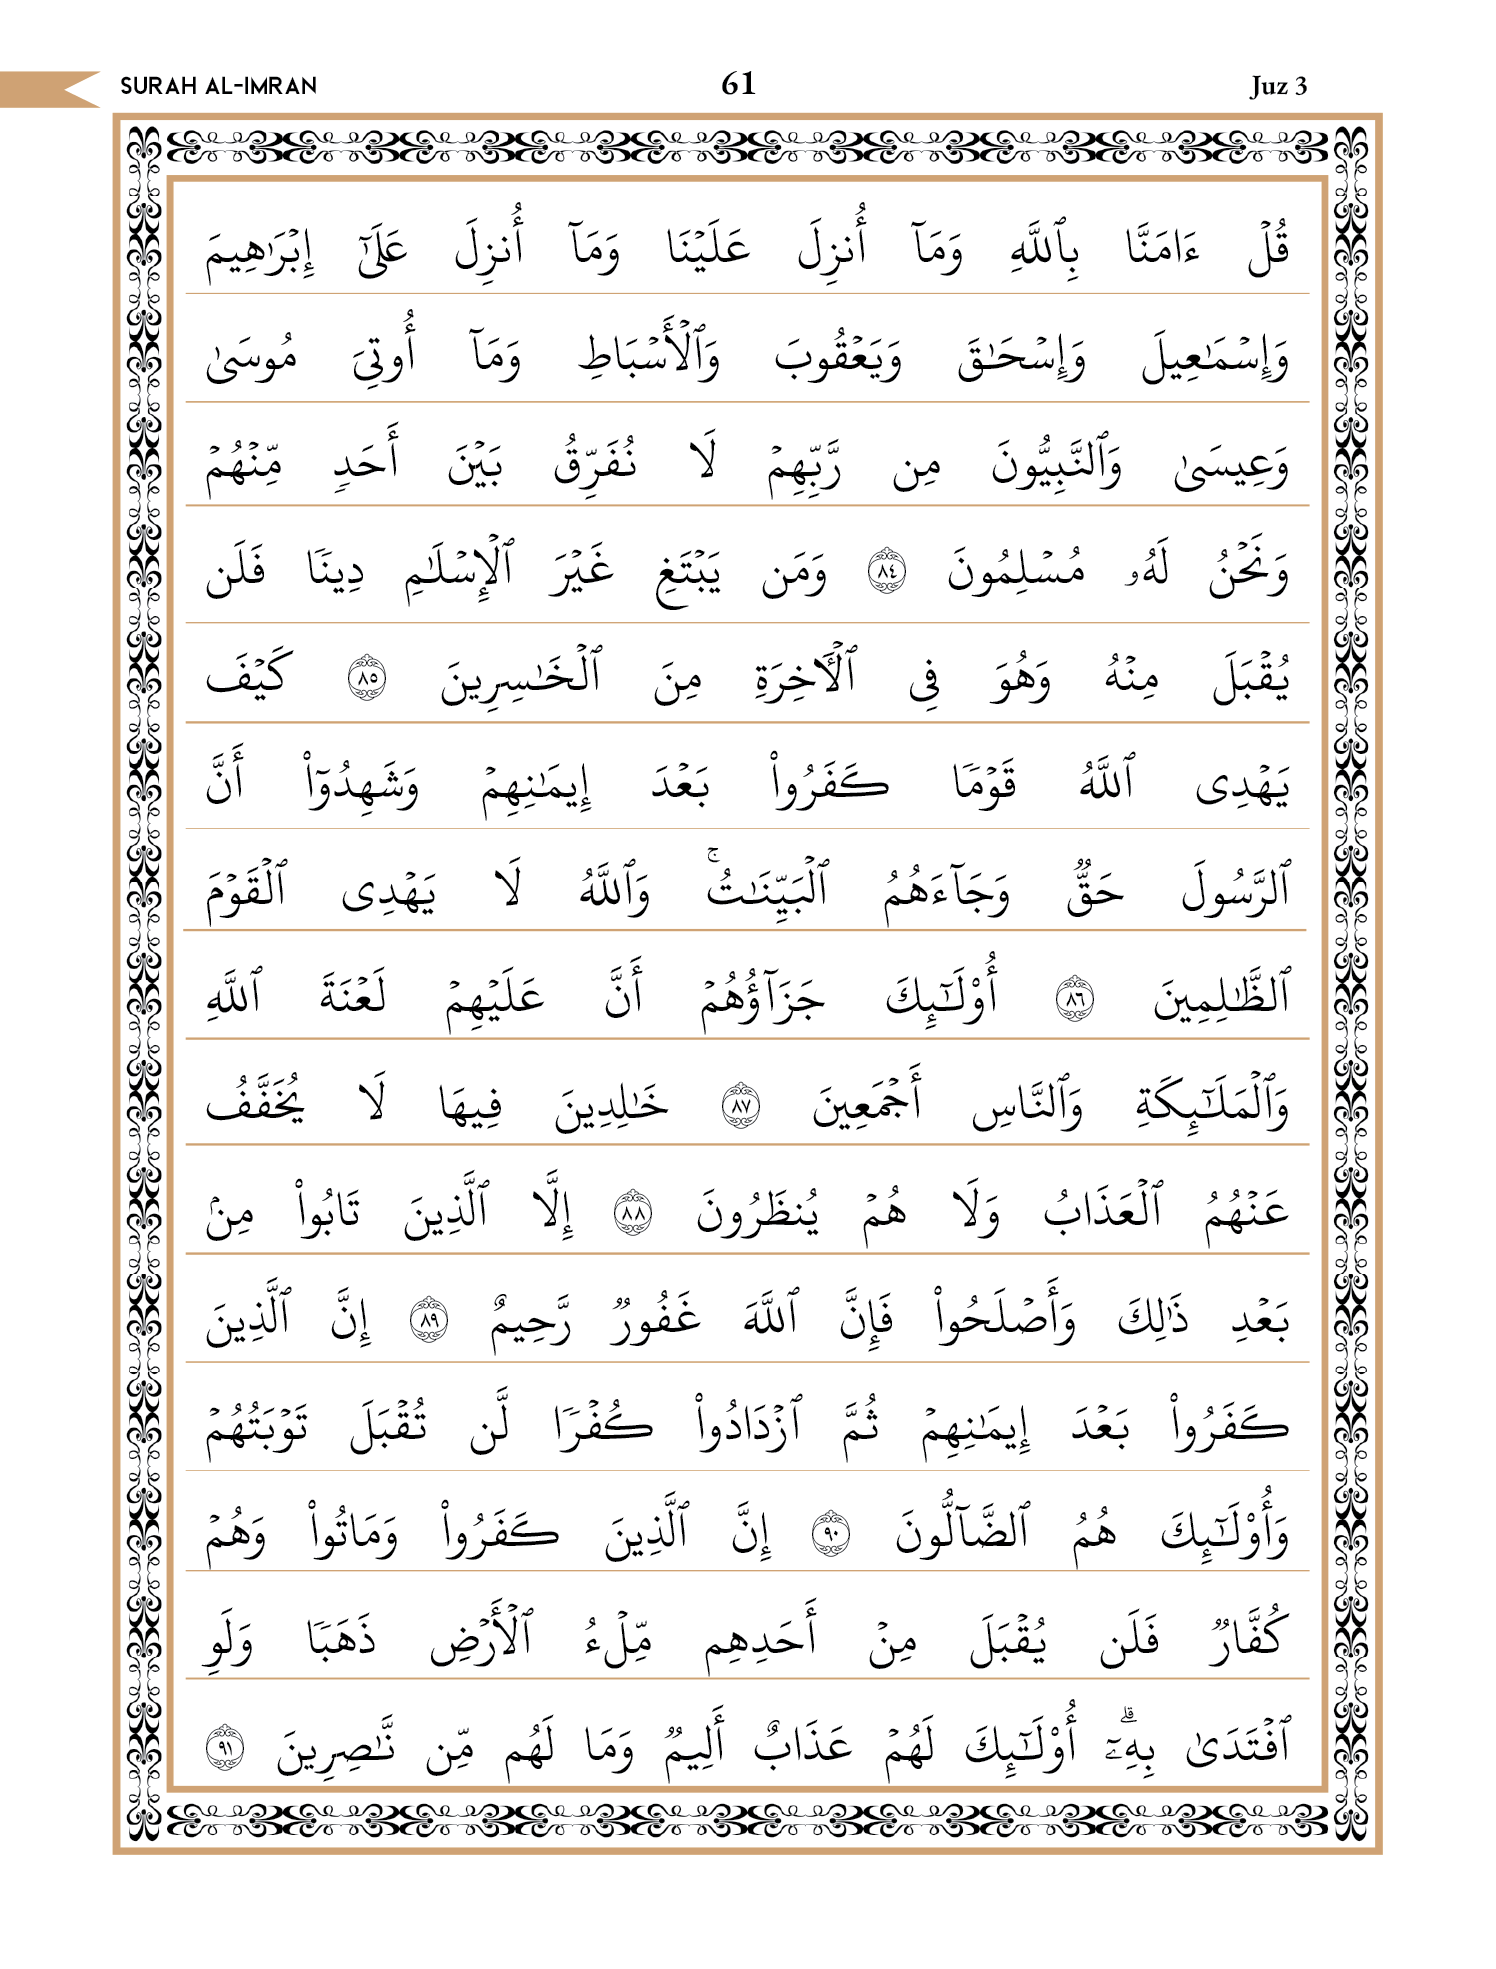 SURAH AL-IMRAN 61 Juz 3
قُلْ ءَامَنَّا بِٱللَّهِ وَمَآ أُنزِلَ عَلَيْنَا وَمَآ أُنزِلَ عَلَىٰٓ إِبْرَٰهِيمَ
وَإِسْمَٰعِيلَ وَإِسْحَٰقَ وَيَعْقُوبَ وَٱلْأَسْبَاطِ وَمَآ أُوتِىَ مُوسَىٰ
وَعِيسَىٰ وَٱلنَّبِيُّونَ مِن رَّبِّهِمْ لَا نُفَرِّقُ بَيْنَ أَحَدٍ مِّنْهُمْ
وَنَحْنُ لَهُۥ مُسْلِمُونَ ٨٤ وَمَن يَبْتَغِ غَيْرَ ٱلْإِسْلَٰمِ دِينًا فَلَن
يُقْبَلَ مِنْهُ وَهُوَ فِى ٱلْأَخِرَةِ مِنَ ٱلْخَٰسِرِينَ ٨٥ كَيْفَ
يَهْدِى ٱللَّهُ قَوْمًا كَفَرُوا۟ بَعْدَ إِيمَٰنِهِمْ وَشَهِدُوٓا۟ أَنَّ
ٱلرَّسُولَ حَقٌّ وَجَآءَهُمُ ٱلْبَيِّنَٰتُ ۚ وَٱللَّهُ لَا يَهْدِى ٱلْقَوْمَ
ٱلظَّٰلِمِينَ ٨٦ أُو۟لَٰٓئِكَ جَزَآؤُهُمْ أَنَّ عَلَيْهِمْ لَعْنَةَ ٱللَّهِ
وَٱلْمَلَٰٓئِكَةِ وَٱلنَّاسِ أَجْمَعِينَ ٨٧ خَٰلِدِينَ فِيهَا لَا يُخَفَّفُ
عَنْهُمُ ٱلْعَذَابُ وَلَا هُمْ يُنظَرُونَ ٨٨ إِلَّا ٱلَّذِينَ تَابُوا۟ مِنۢ
بَعْدِ ذَٰلِكَ وَأَصْلَحُوا۟ فَإِنَّ ٱللَّهَ غَفُورٌ رَّحِيمٌ ٨٩ إِنَّ ٱلَّذِينَ
كَفَرُوا۟ بَعْدَ إِيمَٰنِهِمْ ثُمَّ ٱزْدَادُوا۟ كُفْرًا لَّن تُقْبَلَ تَوْبَتُهُمْ
وَأُو۟لَٰٓئِكَ هُمُ ٱلضَّآلُّونَ ٩٠ إِنَّ ٱلَّذِينَ كَفَرُوا۟ وَمَاتُوا۟ وَهُمْ
كُفَّارٌ فَلَن يُقْبَلَ مِنْ أَحَدِهِم مِّلْءُ ٱلْأَرْضِ ذَهَبًا وَلَوِ
ٱفْتَدَىٰ بِهِۦٓ ۗ أُو۟لَٰٓئِكَ لَهُمْ عَذَابٌ أَلِيمٌ وَمَا لَهُم مِّن نَّٰصِرِينَ ٩١